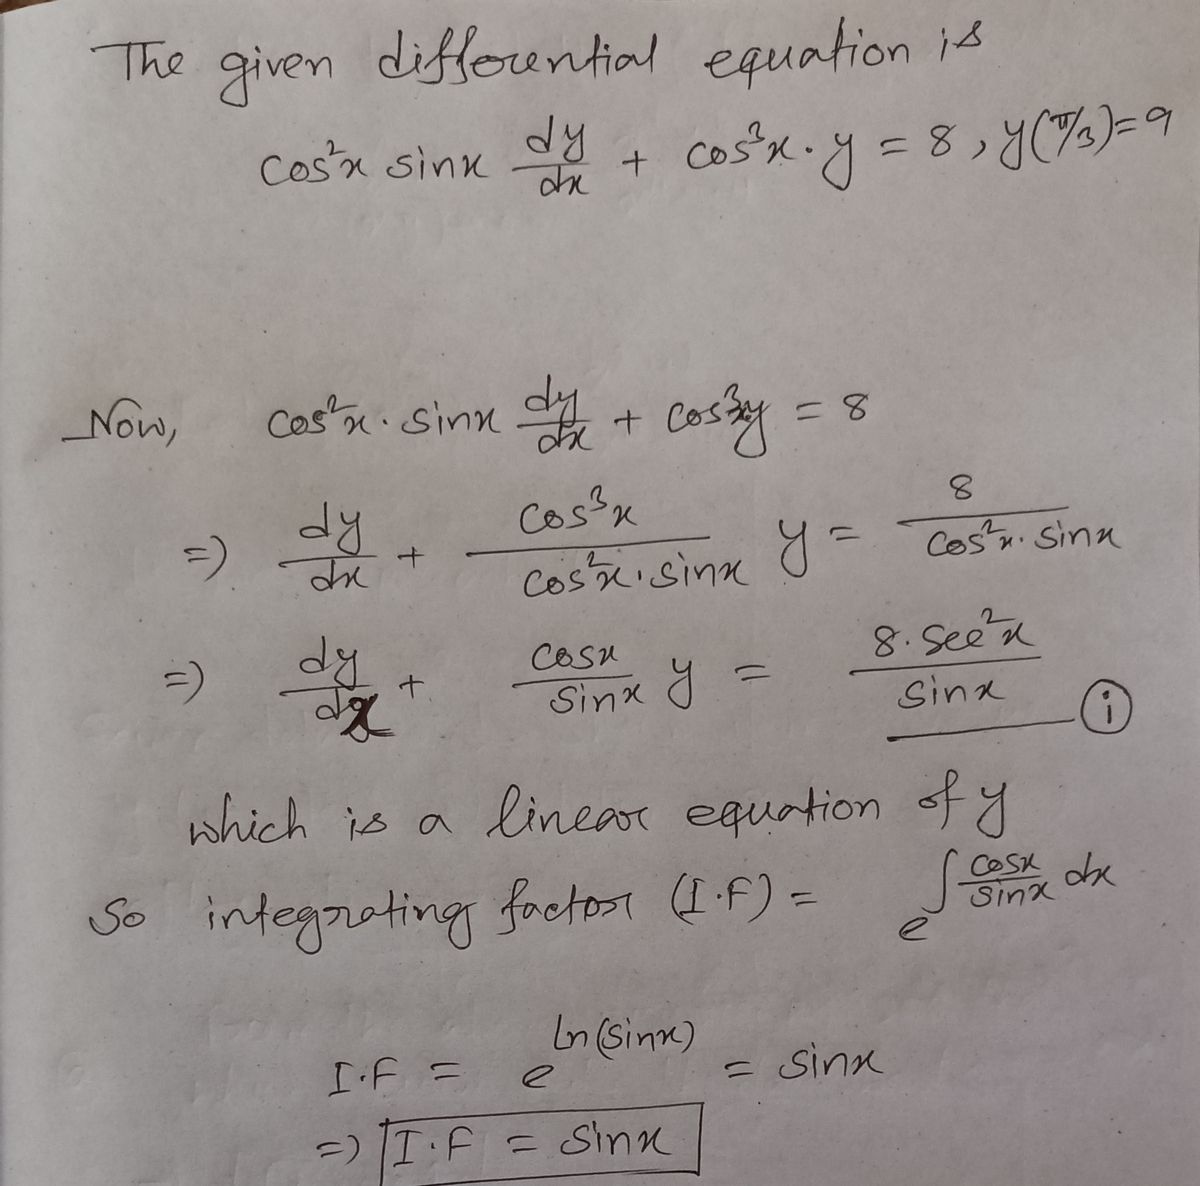 The given differential equation is
cos²x sinx dy/dx + cos³x · y = 8, y(π/3) = 9
Now, cos²x · sinx dy/dx + cos³xy = 8
=) dy/dx + cos³x/cos²x · sinx y = 8/cos²x · sinx
=) dy/dx + cosx/sinx y = 8 · sec²x/sinx (i)
which is a linear equation of y
So integrating factor (I.F) = e^∫ cosx/sinx dx
I.F = e^ln(sinx) = sinx
=) I.F = sinx